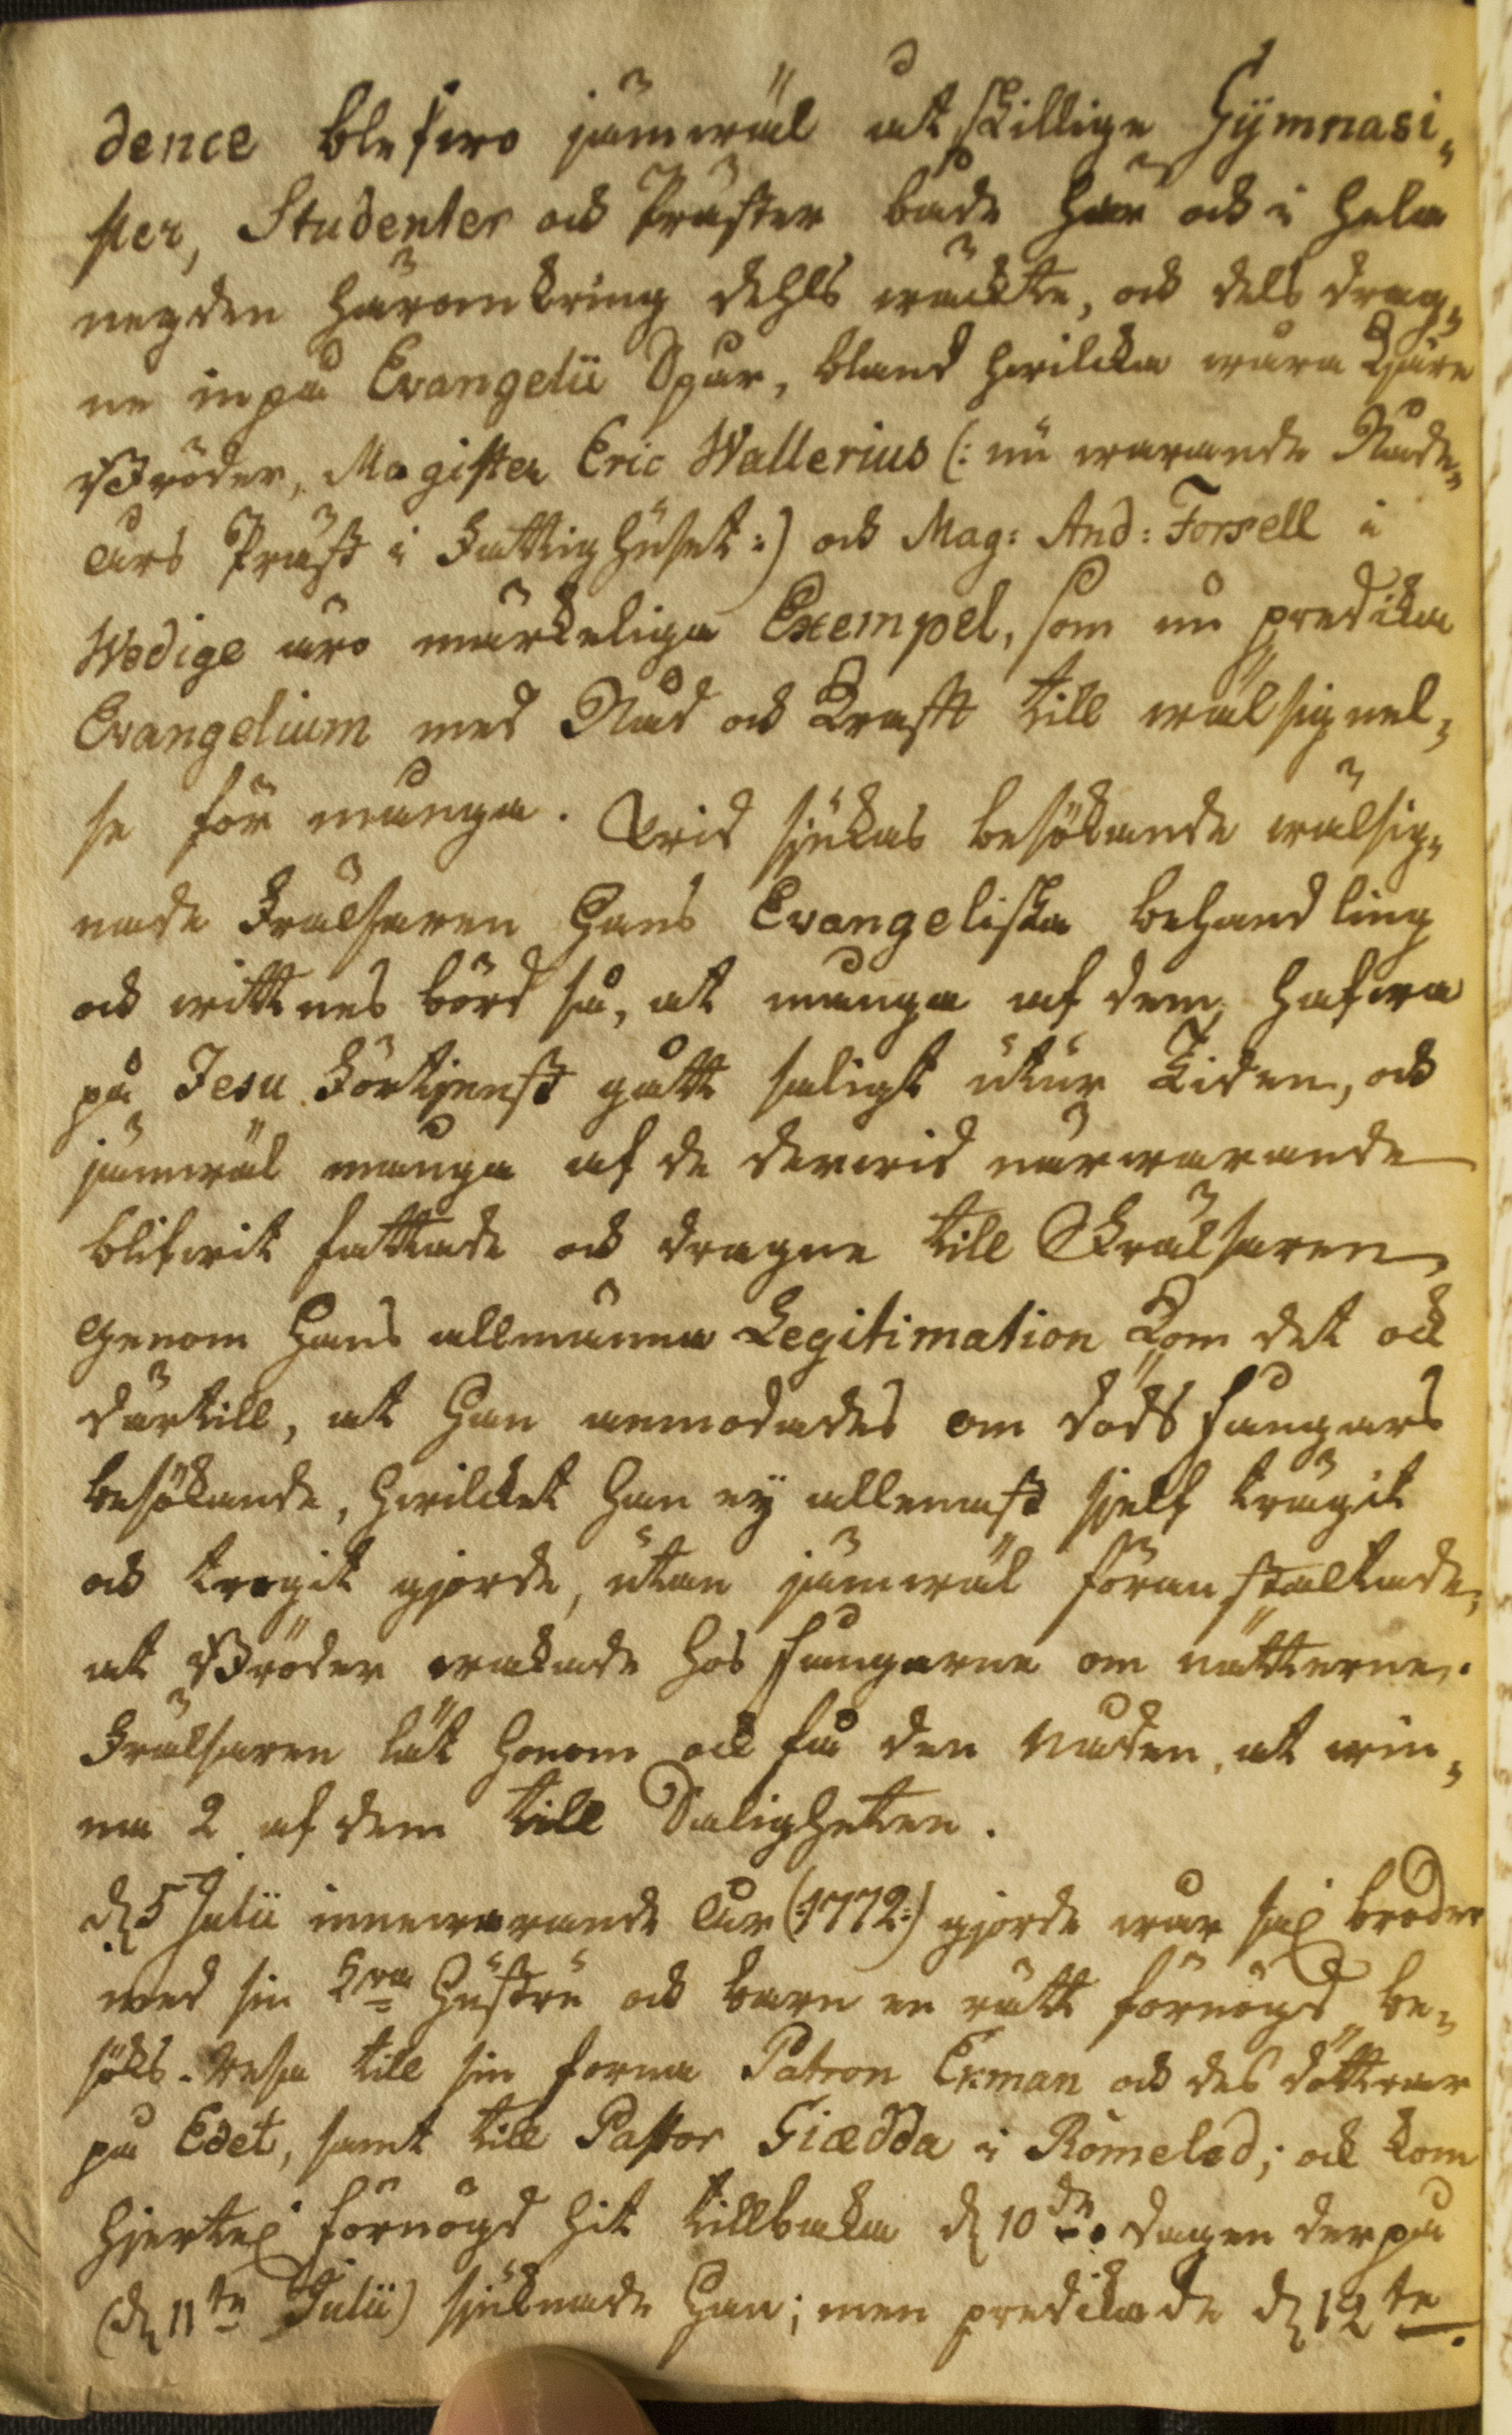 dence blefwo jämwäl åtskillige Gÿmnasi-
ster, Studenter och Präster både här och i hela
negden häromkring dehls wäckte, och dels drag-
ne in på Evangelii Spår, bland hwilcka wåra Kjäre
Bröder, Magister Eric Wallerius (: nu warande Nåde-
års Präst i Fattighuset :) och Mag: And: Forsell i
Wedige äro märckeliga Exempel, som nu predika
Evangelium med Nåd och Krafft till wälsignel-
se för många. Wid sjukas besökande wälsig-
nade Frälsaren Hans Evangeliska behandling
och wittnesbörd så, at många af dem hafwa
på Jesu Förtjenst gått saligt utur Tiden, och
jämwäl många af de derwid närwarande
blifwit fattade och dragne till Frälsaren.
Genom Hans allmänna Legitimation kom det ock
därtill, at Han anmodades om dödsfångars
besökande, hwilcket Han ej allenast sjelf trägit
och trogit gjorde, utan jämwäl föranstaltade,
at Bröder wakade hos fångarne om nätterne.
Frälsaren lät honom ock få den nåden, at win-
na 2 af dem till Saligheten.
d. 5 Julii innewarande Åhr (:1772:) gjorde wår sal. broder
med sin k. Hustru och barn en rätt förnögd be-
söks-resa till sin forna Patron Ekman och des döttrar
på Edet, samt till Pastor Giædda i Romeled; och kom
hjertel. förnögd hit tillbaka d. 10de dagen derpå
(d. 11te Julii) sjuknade Han; men predikade d. 12te